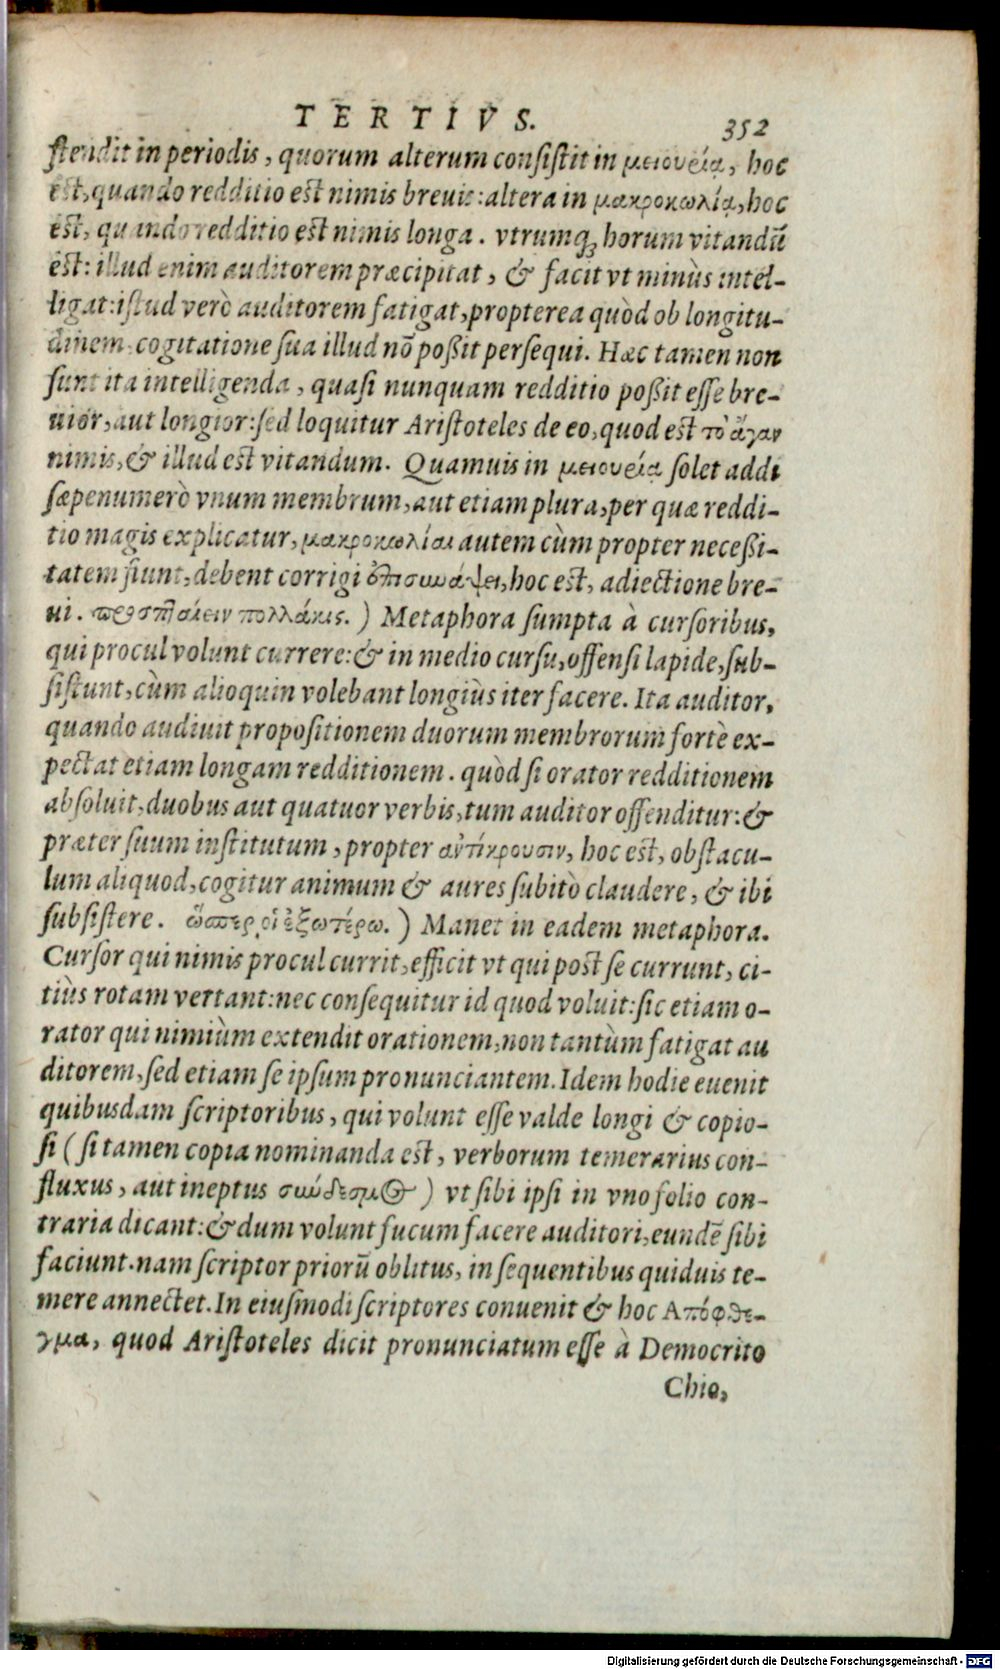 TERTIVS.
352
stendit in periodis, quorum alterum consistit in μειουρίᾳ, hoc
est, quando redditio est nimis breuis: altera in μακροκωλίᾳ, hoc
est, quando redditio est nimis longa. vtrumq; horum vitandū
est: illud enim auditorem præcipitat, & facit vt minùs intel-
ligat: istud verò auditorem fatigat, propterea quòd ob longitu-
dinem, cogitatione sua illud nō poßit persequi. Hæc tamen non
sunt ita intelligenda, quasi nunquam redditio poßit esse bre-
uior, aut longior: sed loquitur Aristoteles de eo, quod est τὸ ἄγαν
nimis, & illud est vitandum. Quamuis in μειουρίᾳ solet addi
sæpenumerò vnum membrum, aut etiam plura, per quæ reddi-
tio magis explicatur, μακροκωλίαι autem cùm propter neceßi-
tatem fiunt, debent corrigi ἐπισυνάψει, hoc est, adiectione bre-
ui. προσπταίειν πολλάκις.) Metaphora sumpta à cursoribus,
qui procul volunt currere: & in medio cursu, offensi lapide, sub-
sistunt, cùm alioquin volebant longiùs iter facere. Ita auditor,
quando audiuit propositionem duorum membrorum fortè ex-
pectat etiam longam redditionem. quòd si orator redditionem
absoluit, duobus aut quatuor verbis, tum auditor offenditur: &
præter suum institutum, propter ἀντίκρουσιν, hoc est, obstacu-
lum aliquod, cogitur animum & aures subitò claudere, & ibi
subsistere. ὥσπερ οἱ ἐξωτέρω.) Manet in eadem metaphora.
Cursor qui nimis procul currit, efficit vt qui post se currunt, ci-
tiùs rotam vertant: nec consequitur id quod voluit: sic etiam o-
rator qui nimiùm extendit orationem, non tantùm fatigat au
ditorem, sed etiam se ipsum pronunciantem. Idem hodie euenit
quibusdam scriptoribus, qui volunt esse valde longi & copio-
si (si tamen copia nominanda est, verborum temerarius con-
fluxus, aut ineptus σύνδεσμος) vt sibi ipsi in vno folio con-
traria dicant: & dum volunt fucum facere auditori, eundē sibi
faciunt. nam scriptor priorū oblitus, in sequentibus quiduis te-
mere annectet. In eiusmodi scriptores conuenit & hoc Ἀπόφθε-
γμα, quod Aristoteles dicit pronunciatum esse à Democrito
Chio,
Digitalisierung gefördert durch die Deutsche Forschungsgemeinschaft - DFG